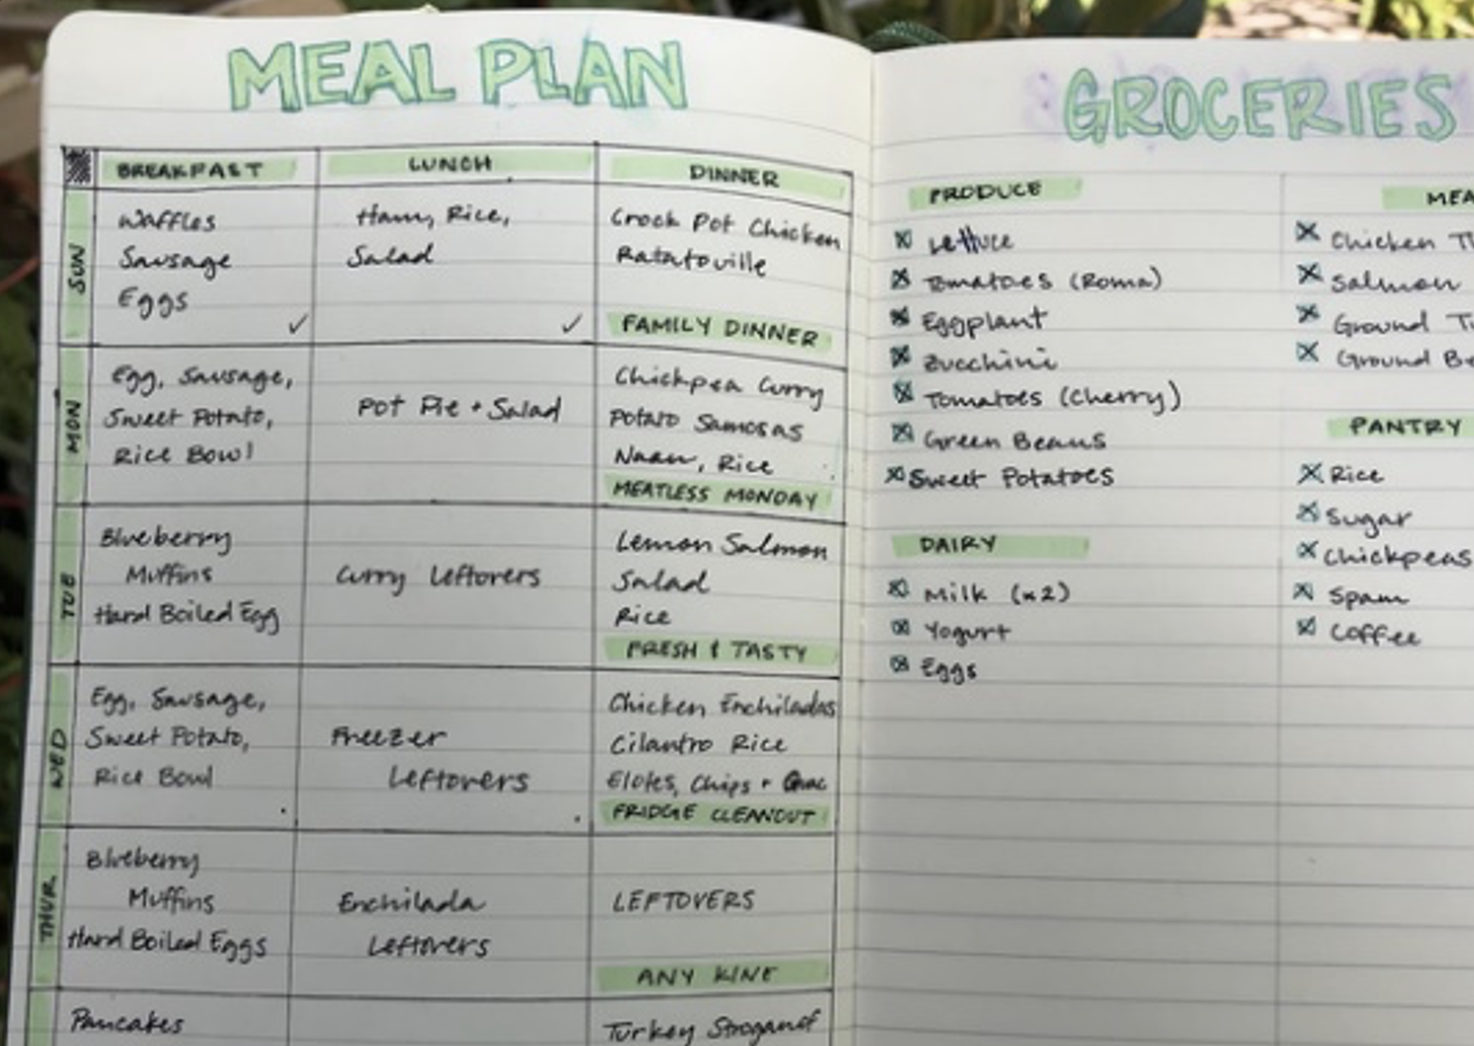 MEAL PLAN
BREAKFAST
LUNCH
DINNER
SUN
Waffles
Sausage
Eggs
Ham, Rice,
Salad
Crock Pot Chicken
Ratatouille
FAMILY DINNER
MON
Egg, Sausage,
Sweet Potato,
Rice Bowl
Pot Pie + Salad
Chickpea Curry
Potato Samosas
Naan, Rice
MEATLESS MONDAY
TUE
Blueberry
Muffins
Hard Boiled Egg
Curry Leftovers
Lemon Salmon
Salad
Rice
FRESH & TASTY
WED
Egg, Sausage,
Sweet Potato,
Rice Bowl
Freezer
Leftovers
Chicken Enchiladas
Cilantro Rice
Elotes, Chips + Guac
FRIDGE CLEANOUT
THUR
Blueberry
Muffins
Hard Boiled Eggs
Enchilada
Leftovers
LEFTOVERS
ANY KINE
Pancakes
Turkey Stroganof
GROCERIES
PRODUCE
Lettuce
Tomatoes (Roma)
Eggplant
Zucchini
Tomatoes (Cherry)
Green Beans
Sweet Potatoes
DAIRY
Milk (x2)
Yogurt
Eggs
MEA
Chicken Th
Salmon
Ground Tu
Ground Be
PANTRY
Rice
Sugar
Chickpeas
Spam
Coffee